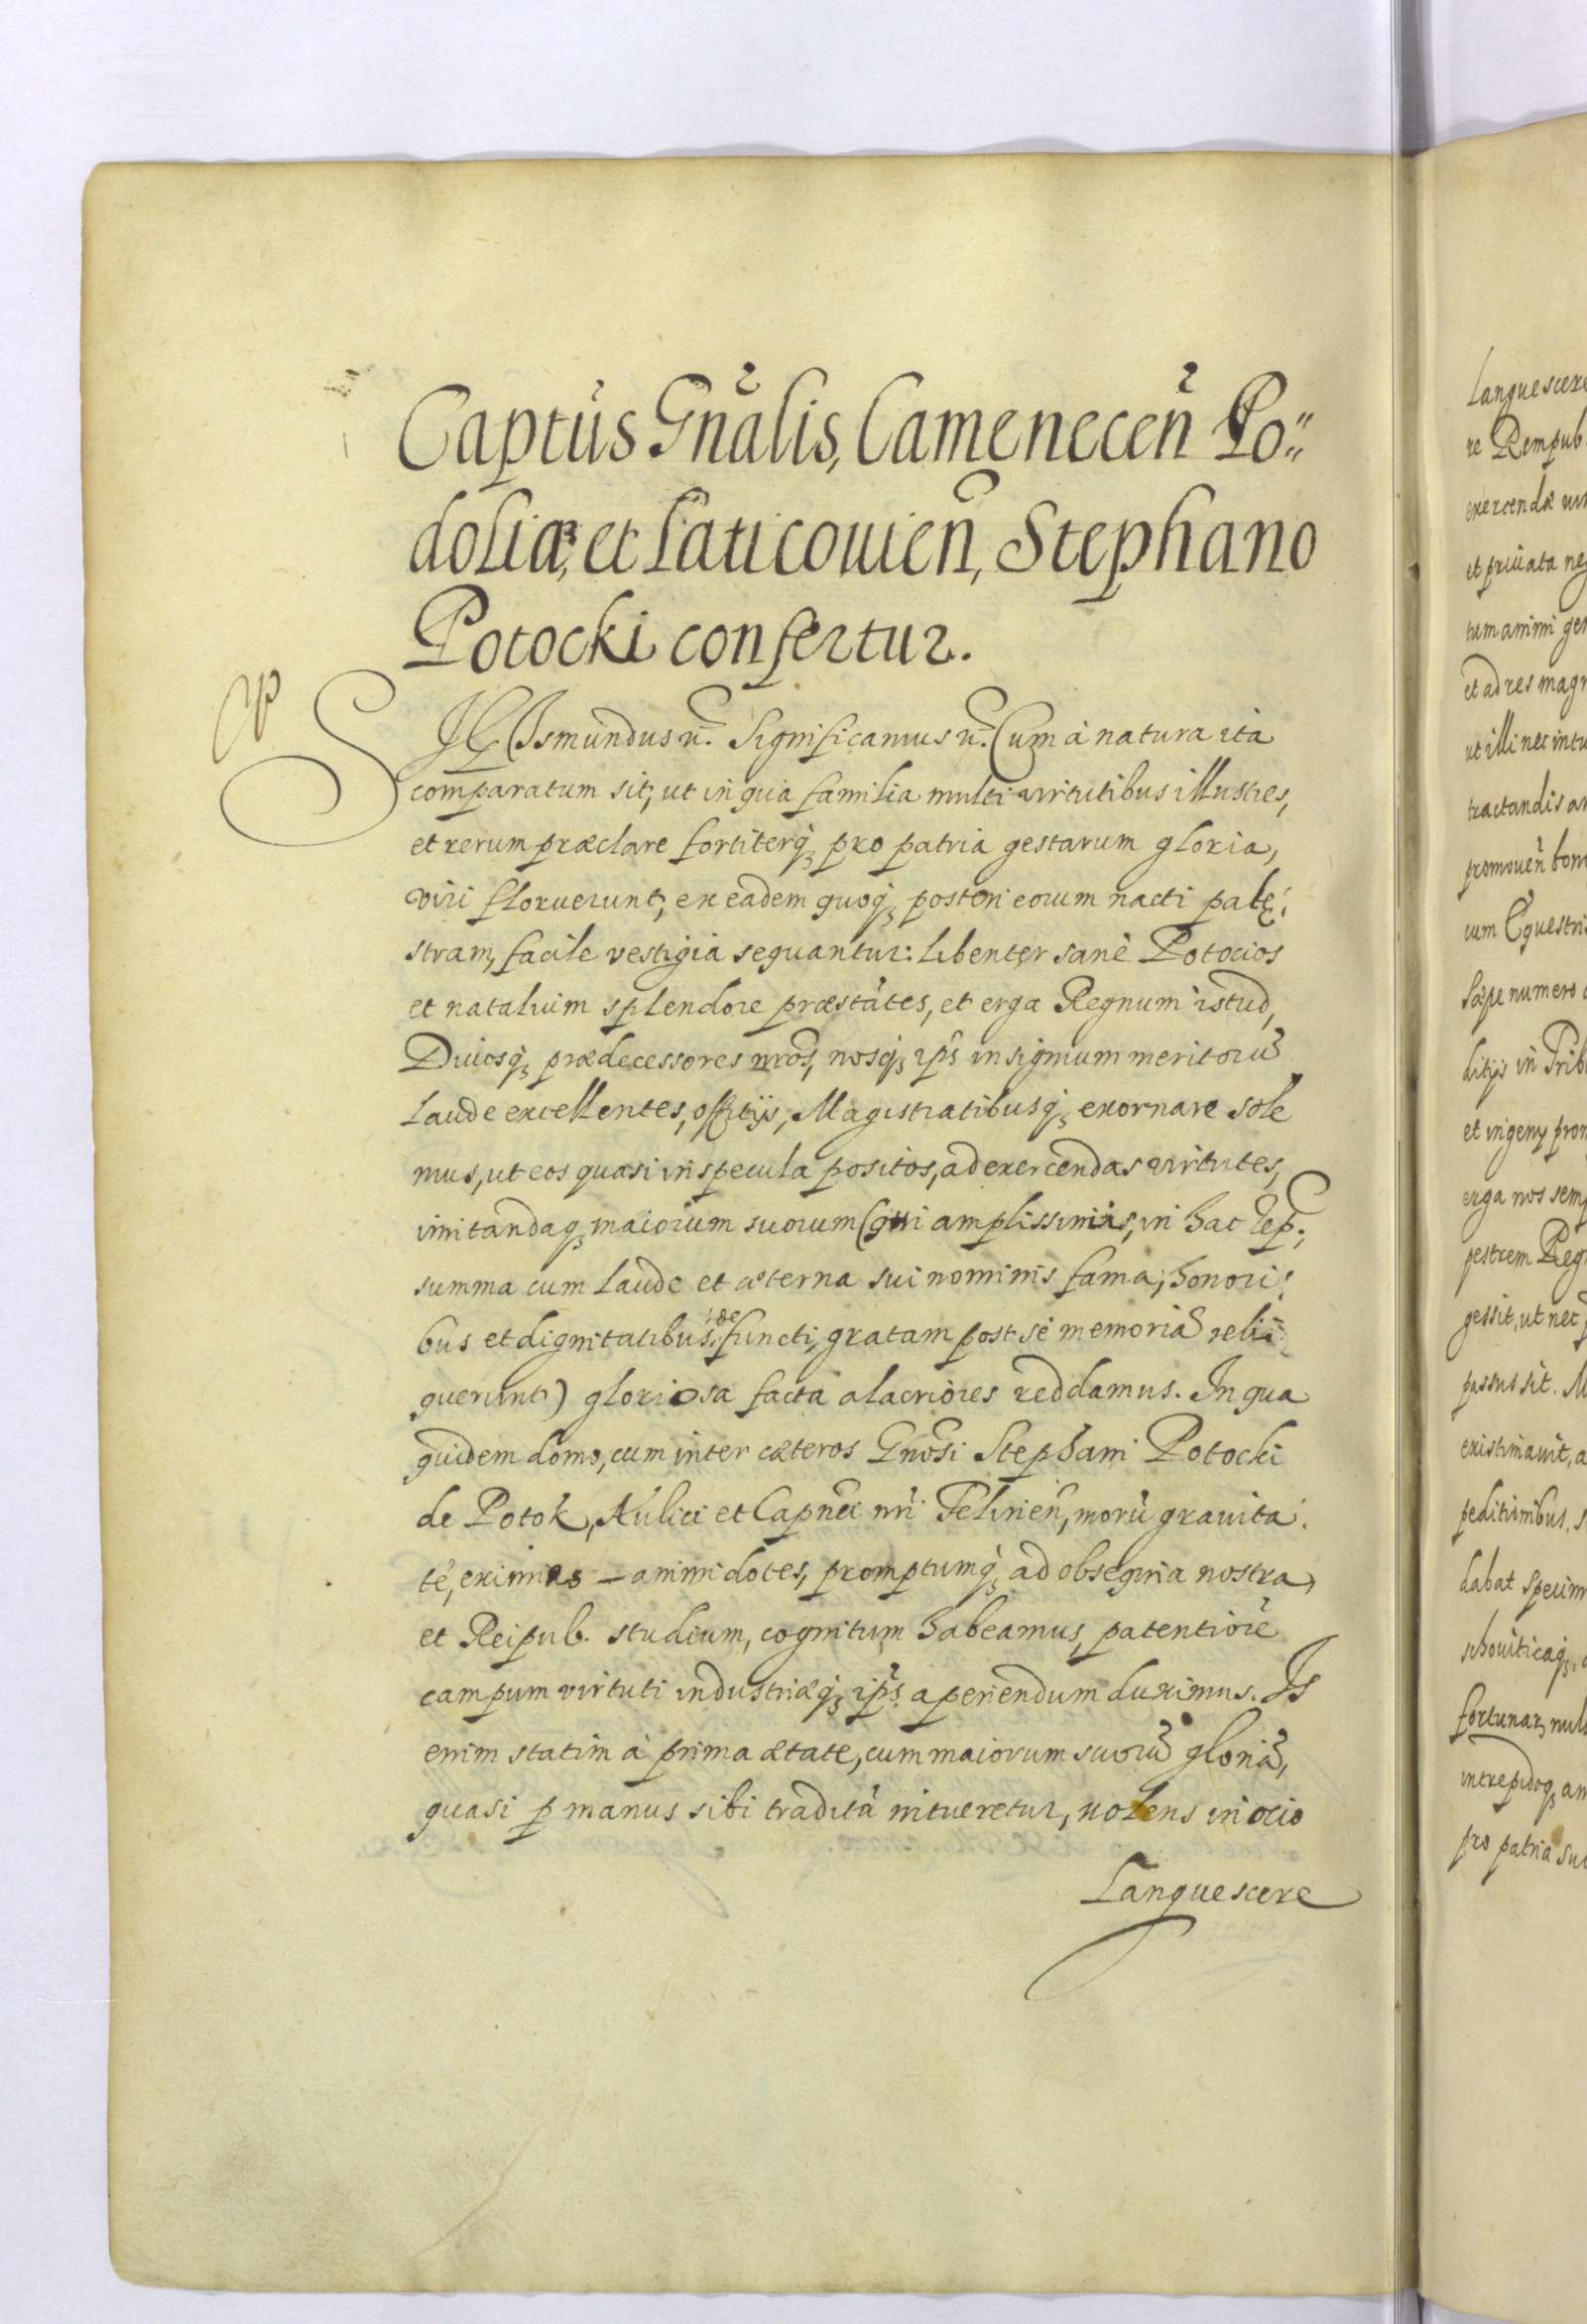 Captũs Gñalis, Camenecẽn Po"
doliæ, et Laticouiẽn, Stephano
Potocki confertur.
SIGIsmundus ẽ. Significamus ẽ. Cum à natura ita
comparatum sit, ut in qua familia multi virtutibus illustres,
et rerum præclare fortiterq; pro patria gestarum gloria,
viri floruerunt, ex eadem quoq; posteri eorum nacti palę:
stram, facile vestigia sequantur: libenter sanè Potocios
et natalium splendore præstātes, et erga Regnum istud,
Diuosq; prædecessores nr̃os, nosq; ip̃s insignium meritorũ
laude excellentes, offitijs, Magistratibusq; exornare sole
mus, ut eos quasi in specula positos, ad exercendas virtutes,
imitandaq; maiorum suorum (qui amplissimis, in hac Rep:,
summa cum laude et æterna sui nominis fama, honori:
bus et dignitatibus, defuncti, gratam post se memoriã reli:
querunt) gloriosa facta alacriores reddamus. In qua
quidem domo, cum inter cæteros Gnõsi Stephani Potocki
de Potok, Aulici et Capnei nr̃i Feliniẽn, morũ grauita:
te, eximias - animi dotes, promptumq; ad obsequia nostra,
et Reipub. studium, cognitum habeamus, patentiorẽ
campum virtuti industriæq; ip̃s aperiendum duximus. Is
enim statim à prima ætate, cum maiorum suorũ gloriã,
quasi p manus sibi traditã intueretur, nolens in ocio
Languescere
Languescere
re Rempub
exercendæ
et priuata ne
tum animi ge
et ad res magn
ut illi nec intu
tractandis a
promouẽn bon
cum Equestri
Sæpe numero
ditijs in Trib
et ingenij pro
erga nos sem
pestrem Reg
gessit, ut nec
passus sit. M
existimauit, a
peditionibus, s
dabat specim
schouiticaq;,
fortunæ, nul
intrepidoq; an
pro patria su